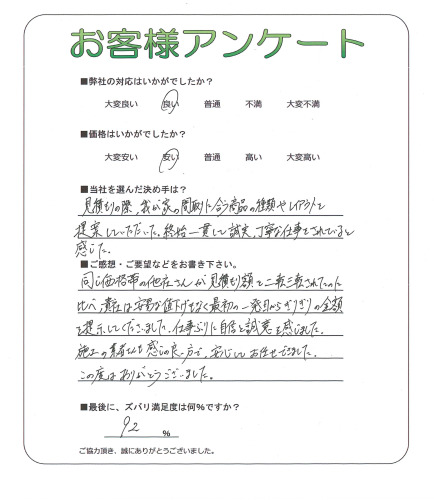 お客様アンケート
■弊社の対応はいかがでしたか？
大変良い 良い 普通 不満 大変不満
■価格はいかがでしたか？
大変安い 安い 普通 高い 大変高い
■当社を選んだ決め手は？
見積もりの際、我が家の間取りに合う商品の種類やレイアウトを
提案していただいた。終始一貫して誠実、丁寧な仕事をされていると
感じた。
■ご感想・ご要望などをお書き下さい。
同じ価格帯の他店さんが見積もり額を二転三転されたのに
比べ、貴社は安易な値下げもなく最初の一発目からぎりぎりの金額
を提示してくださいました。仕事ぶりに自信と誠意を感じました。
施工の業者さんも感じの良い方で、安心してお任せできました。
この度はありがとうございました。
■最後に、ズバリ満足度は何％ですか？
92 ％
ご協力頂き、誠にありがとうございました。